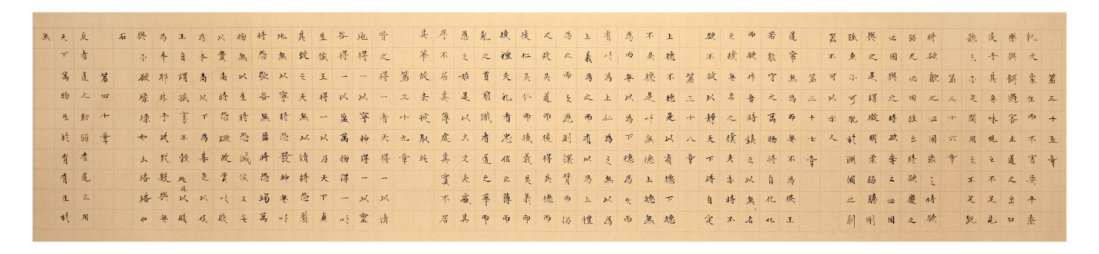 第三十五章
執大象往而不害安平泰
樂與餌過客止道之出口
淡乎其無味視之不足見
聽之不足聞用之不足既
第三十六章
將欲歙之必固張之將欲
弱之必固強之將欲廢之
必固興之將欲奪之必固
與之是謂微明柔弱勝剛
強魚不可脫於淵國之利
器不可以示人
第三十七章
道常無為而無不為侯王
若能守之萬物將自化化
而欲作吾將鎮之以無名
之樸無名之樸夫亦將不
欲不欲以靜天下將自定
第三十八章
上德不德是以有德下德
不失德是以無德上德無
為而無以為下德為之而
有以為上仁為之而無以
為上義為之而有以為上禮
為之而莫之應則攘臂而仍
之故失道而後德失德而
後仁失仁而後義失義而
後禮夫禮者忠信之薄而
亂之首前識者道之華而
愚之始是以大丈夫處其
厚不居其薄處其實不居
其華故去彼取此
第三十九章
昔之得一者天得一以清
地得一以寧神得一以靈
谷得一以盈萬物得一以
生侯王得一以為天下貞
其致之天無以清將恐裂
地無以寧將恐發神無以
靈將恐歇谷無盈將恐竭萬
物無以生將恐滅侯王無
以貴高將恐蹶故貴以賤
為本高以下為基是以侯
王自謂孤寡不穀此非以賤
為本耶非乎故致數輿無
輿不欲琭琭如玉珞珞如
石
第四十章
反者道之動弱者道之用
天下萬物生於有有生於
無